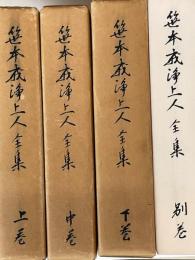 笹本戒浄上人全集 上巻
笹本戒浄上人全集 中巻
笹本戒浄上人全集 下巻
笹本戒浄上人全集 別巻